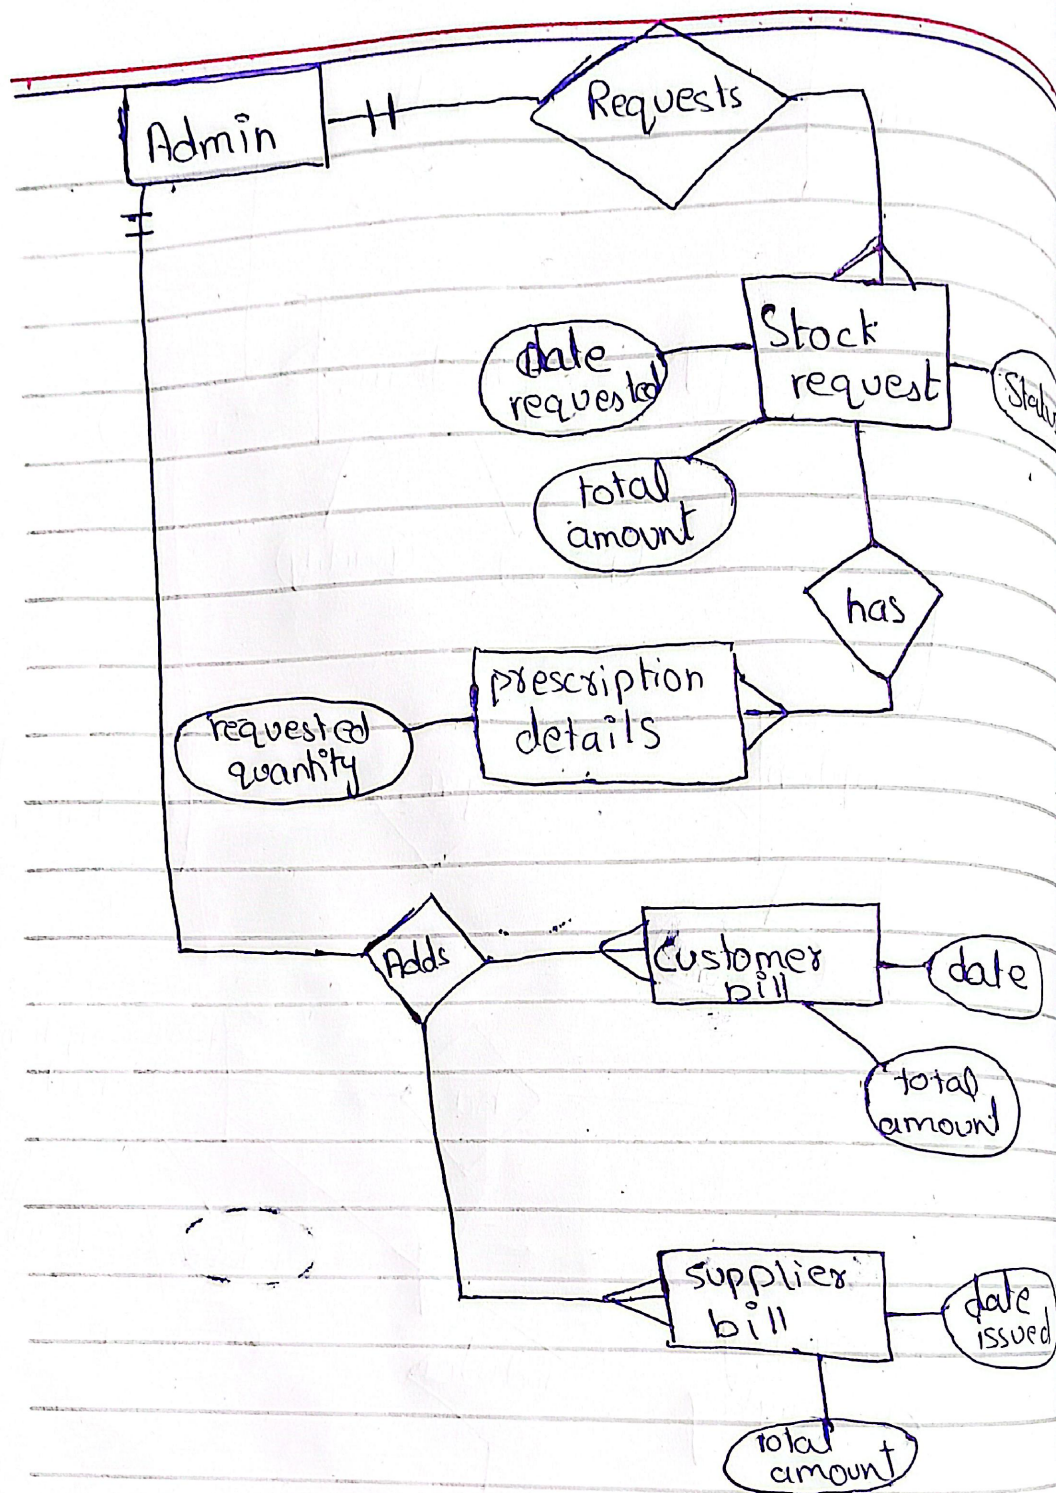 Admin
Requests
Stock
request
date
requested
total
amount
has
prescription
details
requested
quantity
Adds
Customer
bill
date
total
amount
supplier
bill
date
issued
total
amount